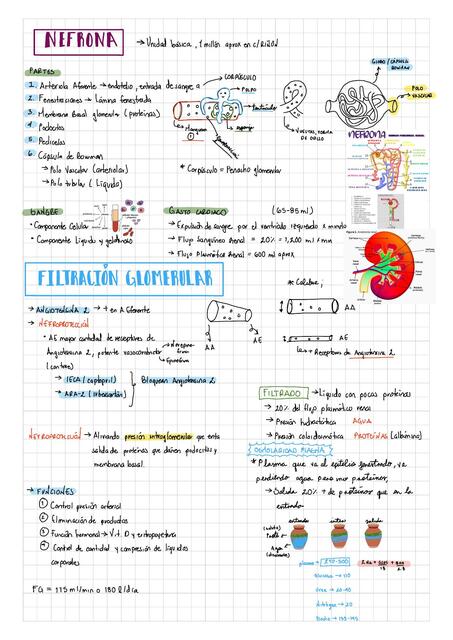 NEFRONA
→ Unidad básica, 1 millón aprox en c/RIÑON
PARTES
1. Arteriola Aferente → endotelio, entrada de sangre
2. Fenestraciones → Lámina fenestrada
3. Membrana Basal glomerular (proteínas)
4. Podocitos
5. Pedicelos
6. Cápsula de Bowman
→ Polo Vascular (arteriolar)
→ Polo tubular (Líquido)
CORPÚSCULO
PULPO
* Corpúsculo = Penacho glomerular
POLO
VASCULAR
NEFRONA
SANGRE
• Componente Celular
• Componente Líquido y gelatinoso
GASTO CARDIACO (65-85 ml)
→ Expulsión de sangre por el ventrículo izquierdo x minuto
→ Flujo Sanguíneo Renal = 20% = 1,200 ml x mn
→ Flujo Plasmático Renal = 600 ml aprox
FILTRACIÓN GLOMERULAR
→ ANGIOTENSINA 2 → + en A. Eferente
→ NEFROPROTECCIÓN
• AE mayor cantidad de receptores de
Angiotensina 2, potente vasoconstrictor
→ IECA (captopril)
→ ARA-2 (irbesartán)
Bloquean Angiotensina 2
AA
AE
AA
AE
↳ + Receptores de Angiotensina 2
FILTRADO → Líquido con pocas proteínas
→ 20% del flujo plasmático renal
→ Presión hidrostática AGUA
→ Presión coloidosmótica PROTEÍNAS (albúmina)
NEFROPROTECCIÓN → Aliviando presión intraglomerular que evita
salida de proteínas que dañen podocitos y
membrana basal.
OSMOLARIDAD PLASMA
* Plasma que va al epitelio fenestrado, va
perdiendo agua pero no proteínas,
→ Salida 20% + de proteínas que en la
entrada
→ FUNCIONES
1 Control presión arterial
2 Eliminación de productos
3 Función hormonal → Vit. D y eritropoyetina
4 Control de cantidad y composición de líquidos
corporales
FG = 125 ml/min o 180 L/día
entrada
salida
Agua
plasma
Glucosa → 110
Urea → 20-40
Sodio → 135-145